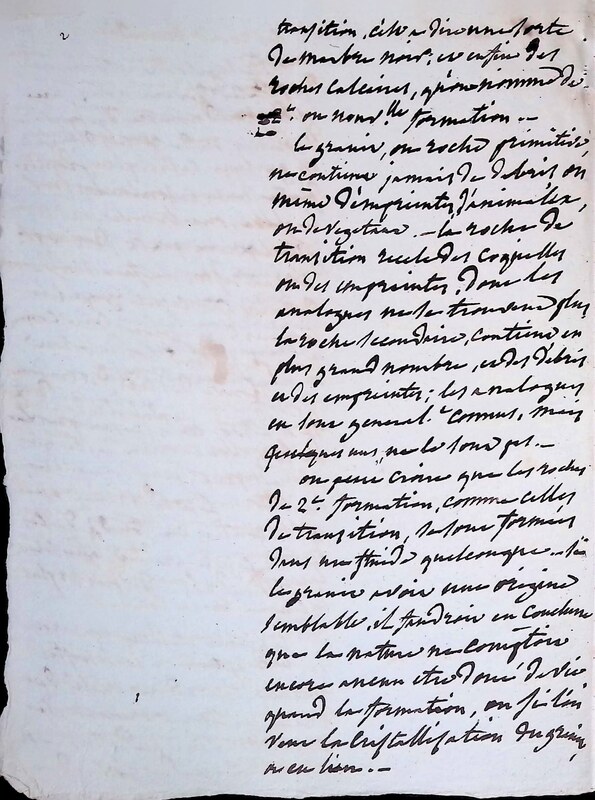 2
transition, c'est a dire une sorte
de marbre noir; et enfin des
roches calcaires, qu'on nomme de
2.e ou nouv.lle formation. —
le granit, ou roche primitive,
ne contient jamais de debris ou
même d'empreintes d'animaux,
ou de vegetaux. — la roche de
transition recele des coquilles
ou des empreintes, dont les
analogues ne se trouvent plus
la roche secondaire, contient en
plus grand nombre, et des débris
et des empreintes; les analogues
en sont general.t connus, mais
quelques uns, ne le sont pas. —
on peut croire que les roches
de 2.e formation, comme celles
de transition, se sont formées
dans un fluide quelconque. — si
le granit avoit une origine
semblable, il faudroit en conclure
que la nature ne comptoit
encore aucun etre doué de vie
quand la formation, ou si l'on
veut la cristallisation du granit,
a eu lieu. —